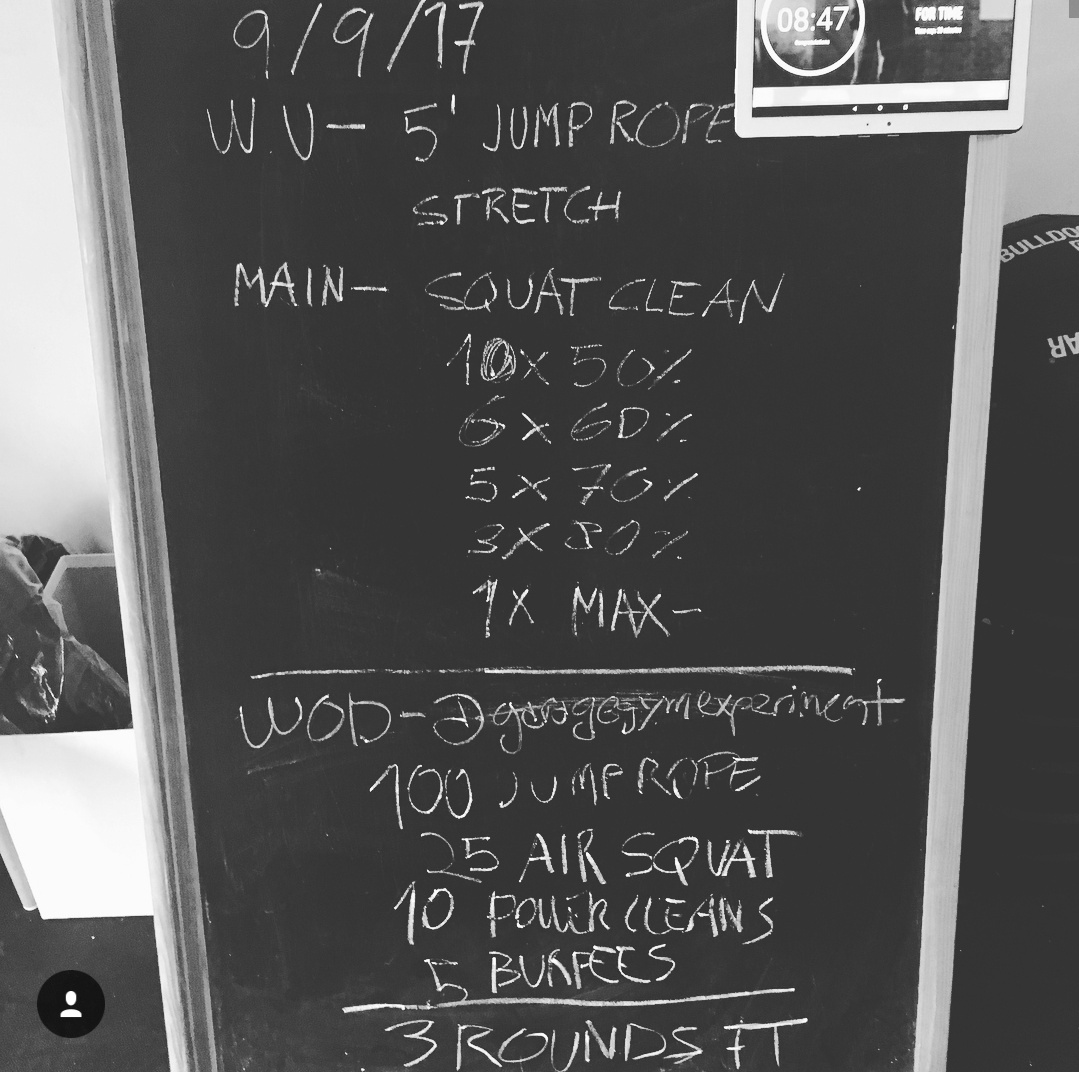 9/9/17
08:47
FOR TIME
W.U- 5' JUMP ROPE
STRETCH
BULLDO
AR
MAIN- SQUAT CLEAN
10x 50%
6 x 60%
5 x 70%
3X 80%
1X MAX-
WOD- @garagegymexperiment
100 JUMP ROPE
25 AIR SQUAT
10 POWER CLEANS
5 BURPEES
3 ROUNDS FT